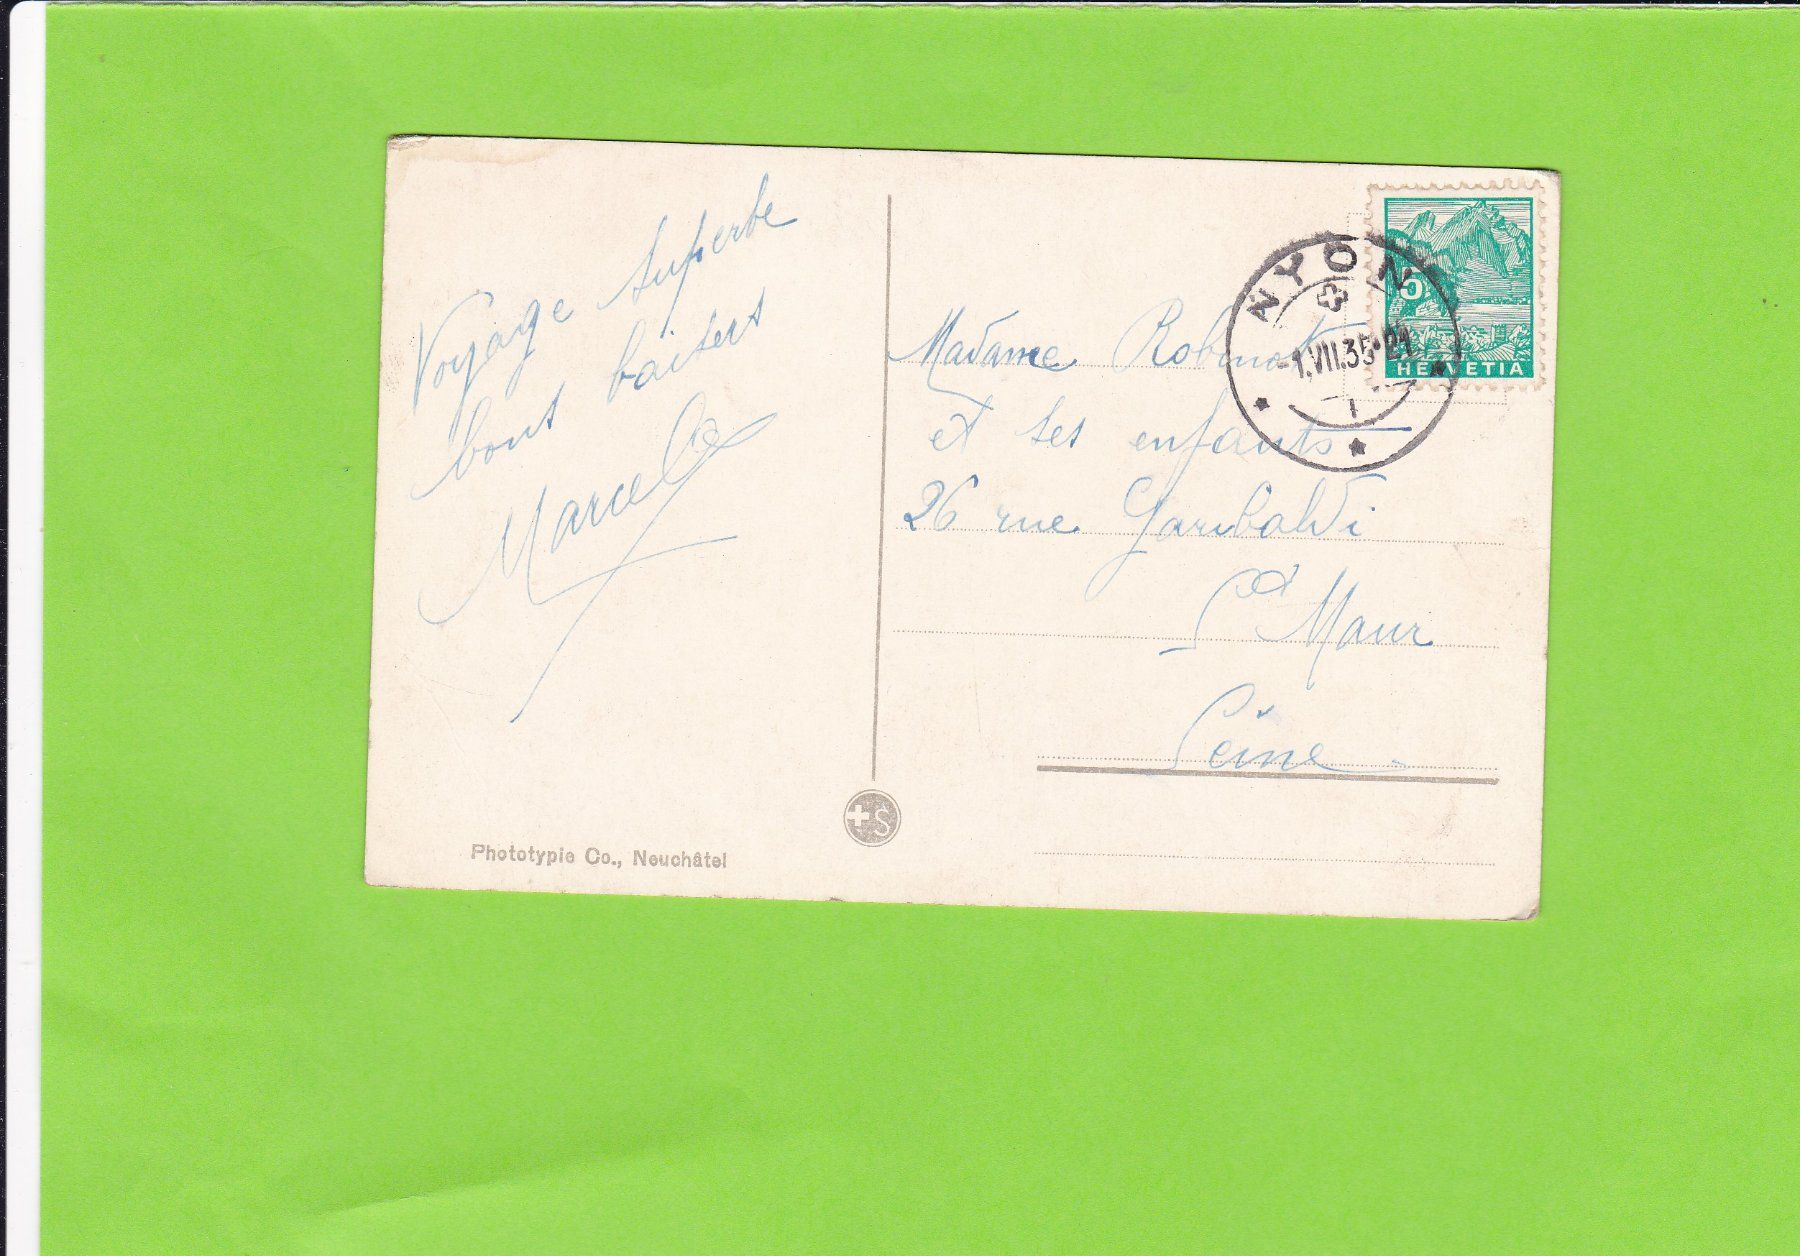 Voyage superbe
bons baisers
Marcel
Phototypie Co., Neuchâtel
+S
NYON
-1.VII.35-21
1
5
HELVETIA
Madame Robinot
et ses enfants
26 rue Garibaldi
St Maur
Seine